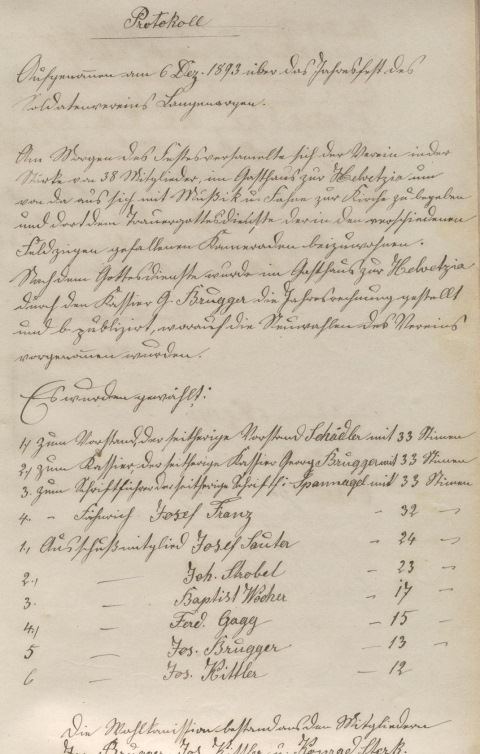 Protokoll
Aufgenommen am 6 Dez. 1893 über das Jahresfest des
Soldatenvereins Langenargen.
Am Morgen des Festes versamelte sich der Verein in der
Stärke von 38 Mitglieder, im Gasthaus zur Helvetzia um
von da aus sich mit Musik u. Fahne zur Kirche zu begeben
und dort dem Trauergottesdienste der in den verschiedenen
Feldzügen gefallenen Kameraden beizuwohnen.
Nach dem Gottesdienste wurde im Gasthaus zur Helvetzia
durch den Kassier G. Brugger die Jahresrechnung gestellt
und publizirt, worauf die Neuwahlen des Vereins
vorgenommen wurden.
Es wurden gewählt:
1.) zum Vorstand, der seitherige Vorstand Schädler mit 33 Stimen
2.) zum Kassier, der seitherige Kassier Georg Brugger mit 33 Stimen
3. zum Schriftführer der seitherige Schriftf: Spannagel mit 33 Stimen
4. - Fähnrich Josef Franz - 32 -
1.) Ausschußmitglied Josef Sauter - 24 -
2.) - Joh. Strobel - 23 -
3. - Baptist Wocher - 17 -
4.) - Ferd. Gagg - 15 -
5 - Jos. Brugger - 13 -
6 - Jos. Kittler - 12
Die Wahlkomission bestand aus den Mitgliedern
Brugger, Jos. Kittler u. Konrad